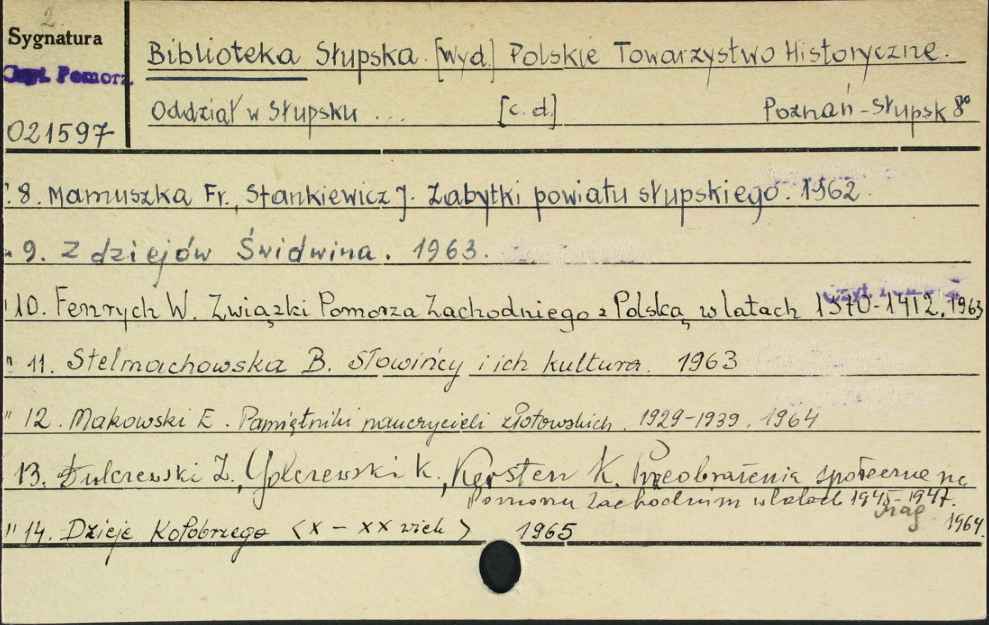 2
Sygnatura
Czyt. Pomorz.
021597
Biblioteka Słupska. [Wyd.] Polskie Towarzystwo Historyczne.
Oddział w Słupsku ... [c.d.] Poznań-Słupsk 8°
" 8. Mamuszka Fr., Stankiewicz J. Zabytki powiatu słupskiego. 1962.
" 9. Z dziejów Świdwina. 1963.
" 10. Fenrych W. Związki Pomorza Zachodniego z Polską w latach 1370-1412. 1963
" 11. Stelmachowska B. Słowińcy i ich kultura. 1963
" 12. Makowski E. Pamiętniki nauczycieli złotowskich. 1929-1939. 1964
13. Dulczewski Z., Golczewski K., Kersten K. Przeobrażenia społeczne na
Pomorzu Zachodnim w latach 1945-1947.
1964.
" 14. Dzieje Kołobrzega <X - XX wiek> 1965